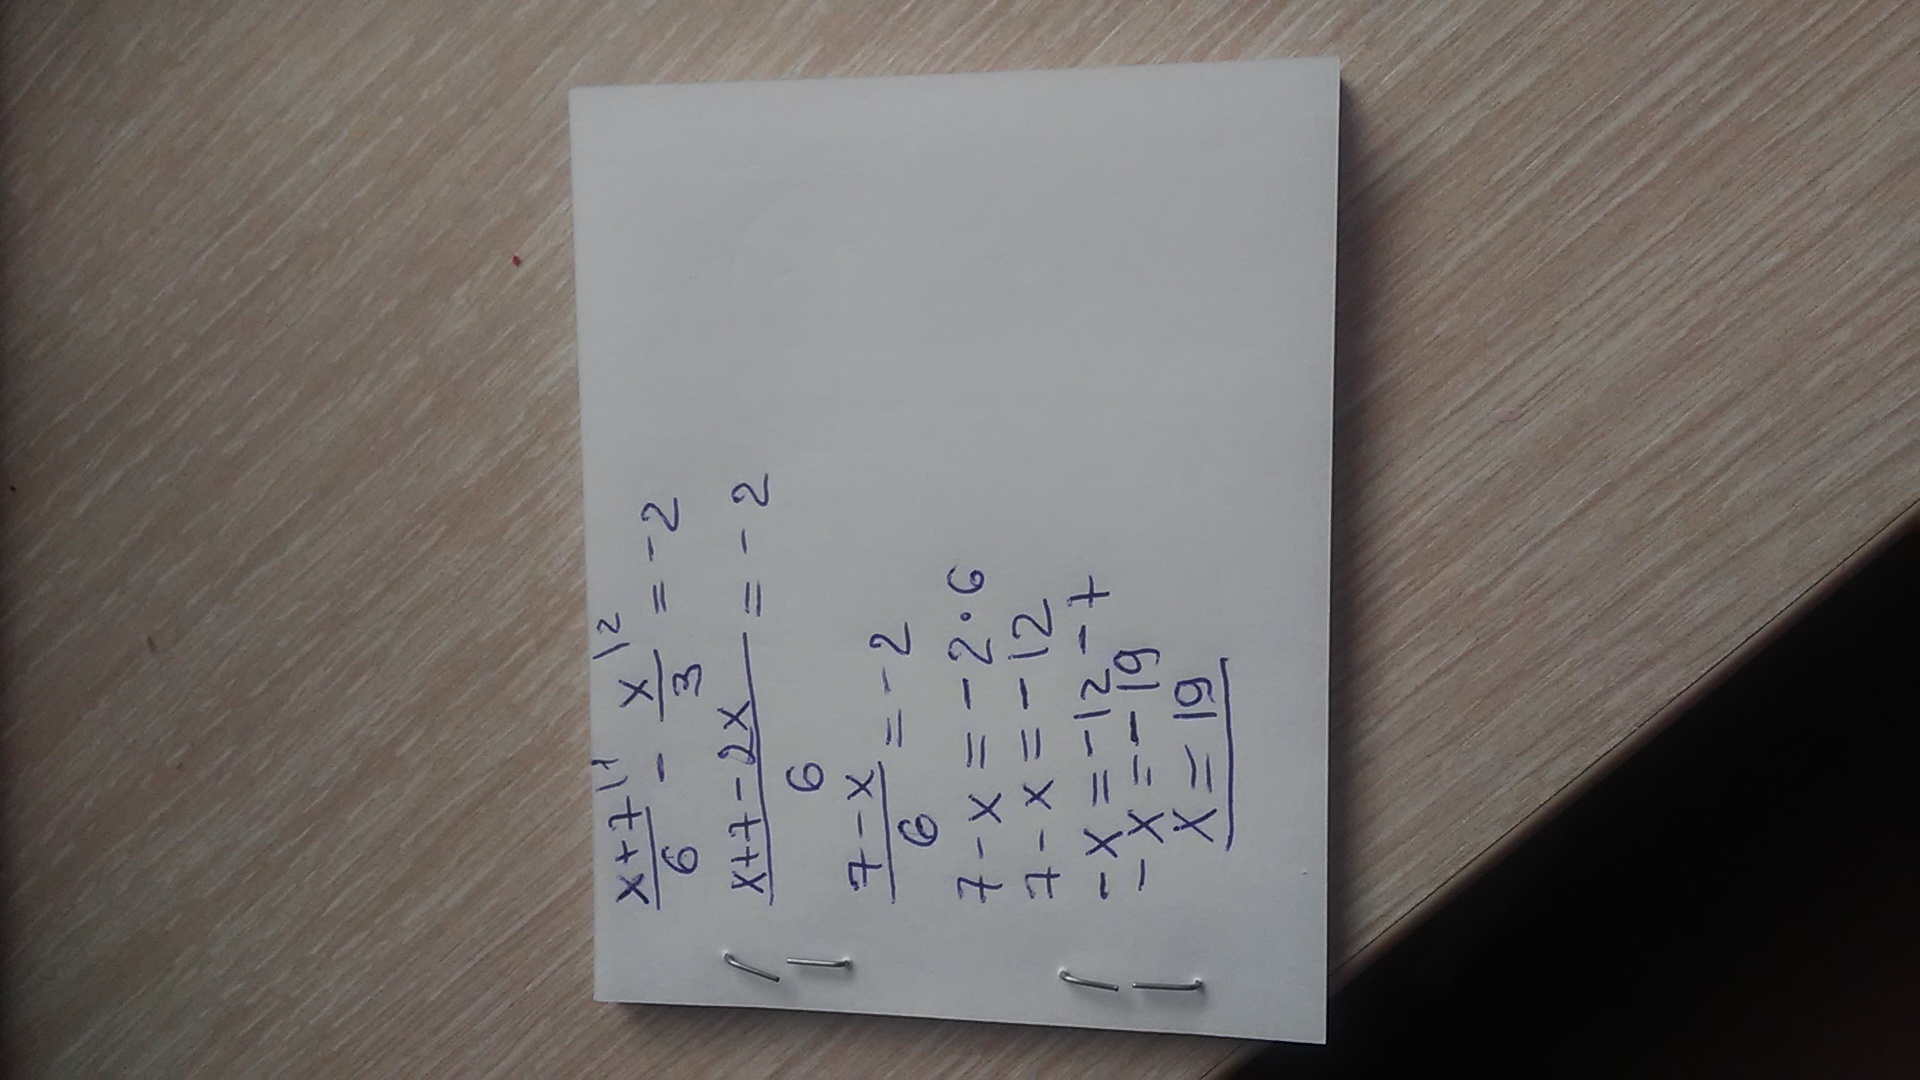 x+7|1/6 - x|2/3 = -2
x+7-2x/6 = -2
7-x/6 = -2
7-x = -2·6
7-x = -12
-x = -12-7
-x = -19
x = 19